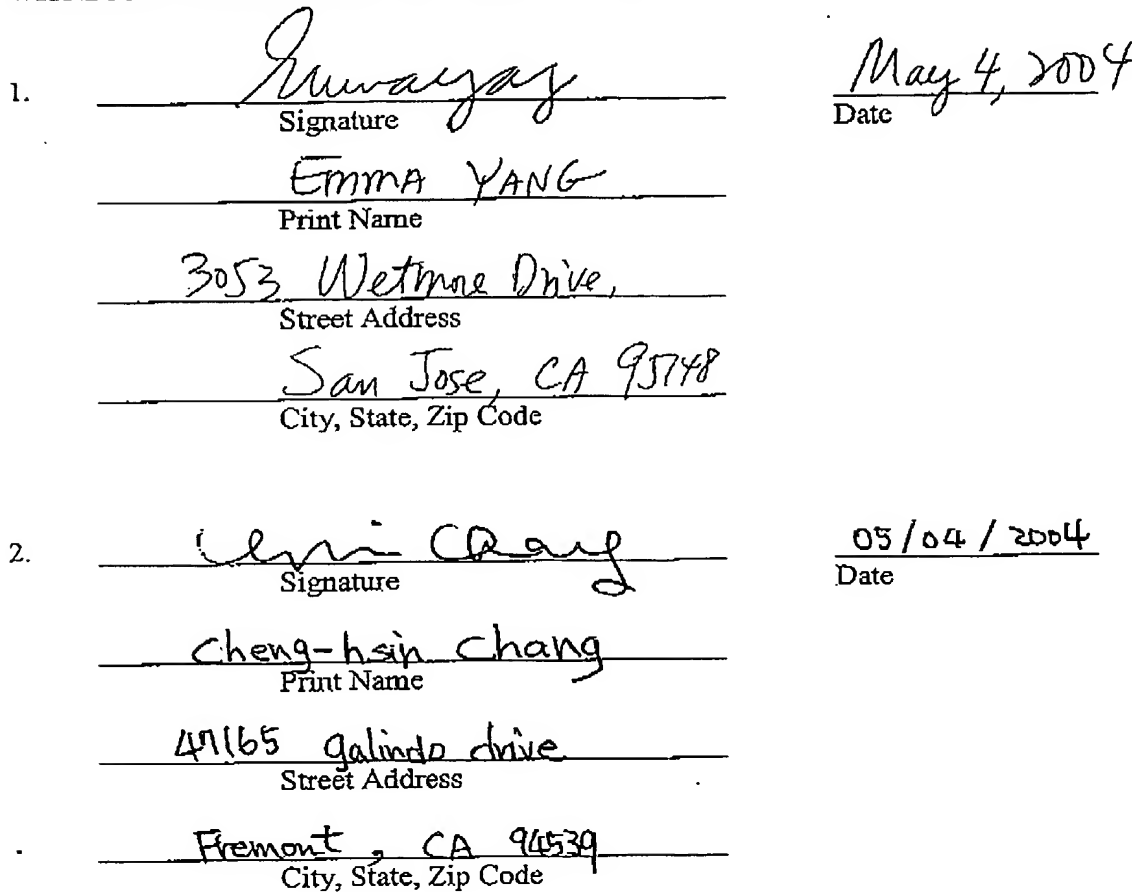 1. Emma Yang May 4, 2004
Signature Date
Emma YANG
Print Name
3053 Wetmore Drive,
Street Address
San Jose, CA 95148
City, State, Zip Code
2. Chang 05/04/2004
Signature Date
Cheng-hsin Chang
Print Name
47165 galindo drive
Street Address
Fremont, CA 94539
City, State, Zip Code